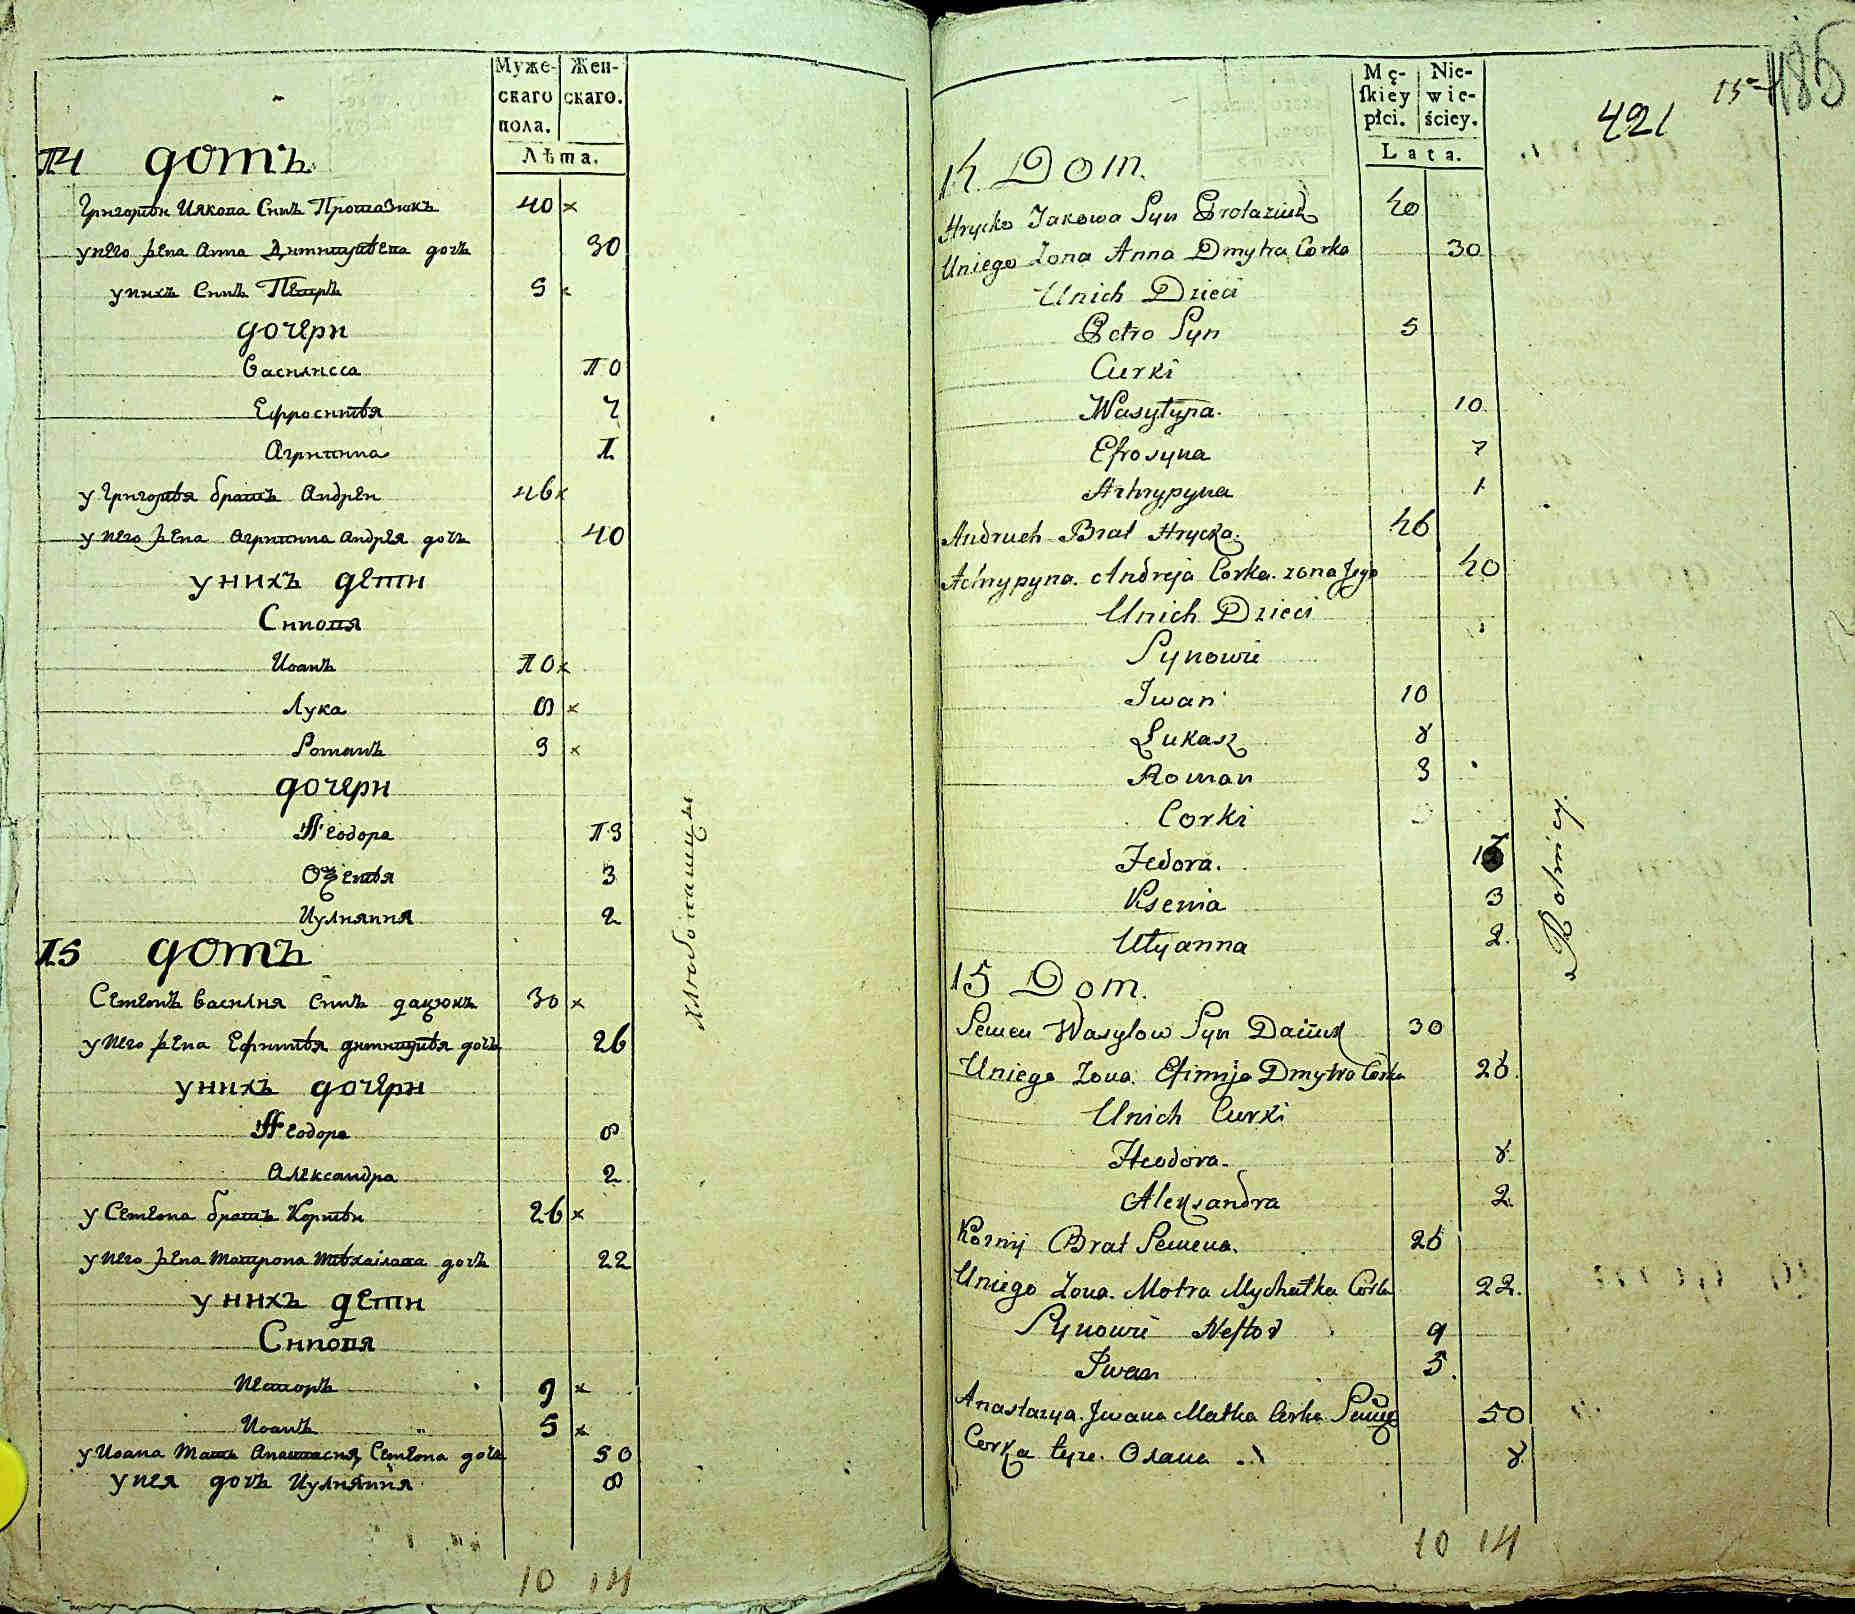 Муже-
скаго
пола.
Жен-
скаго.
Лѣта.
14 домъ
Григорѣи Иякова Снъ Протазюкъ 40 ×
у него жена Анна Дмитриѣва дочь 30
у нихъ Снъ Петръ 5 ×
дочери
Василисса 10
Ефросинѣя 7
Агрипина 1
у Григорѣя братъ Андрей 46 ×
у него жена Агрипина Андрея дочь 40
у нихъ дети
Синовя
Иоанъ 10 ×
Лука 8 ×
Романъ 3 ×
дочери
Ѳеодора 13
Озенѣя 3
Иулияния 2
15 домъ
Семенъ Василия Снъ дацюкъ 30 ×
у него жена Ефимѣя дмитриѣвя дочь 26
у нихъ дочери
Ѳеодора 8
Александра 2
у Семена братъ Корнѣи 26 ×
у него жена Матрона Мѣхаилава дочь 22
у нихъ дети
Синовя
Несторъ 9 ×
Иоанъ 5 ×
у Иоана Мать Анастасия Семена дочь 50
у нея дочь Иулияния 8
10 14
хлѣбопашцы
Mę-
ſkiey
płci.
Nie-
wie-
ściey.
Lata.
421
15
486
14 Dom.
Hrycko Jakowa Syn Protaziuk 40
Uniego Zona Anna Dmytra Corka 30
Unich Dzieci
Petro Syn 5
Curki
Wasyłyna. 10.
Efrosyna 7
Arhrypyna 1
Andruch Brat Hrycka. 46
Achrypyna. Andreja Corka. zona Jego 40
Unich Dzieci
Synowie
Jwan 10
Łukasz 8
Roman 3
Corki
Fedora. 13
Ksenia 3
Ulyanna 2.
15 Dom.
Semen Wasylow Syn Daciuk 30
Uniego Zona. Efimija Dmytra Corka 26.
Unich Curki
Heodora. 8
Alexandra 2.
Kornij Brat Semena. 26
Uniego Zona. Motra Mychałka Corka 22.
Synowie Neſtor 9
Jwan 5.
Anastazya. Jwana Matka Corka Semena 50
Corka teyze. 8
Rolnicy.
10 14